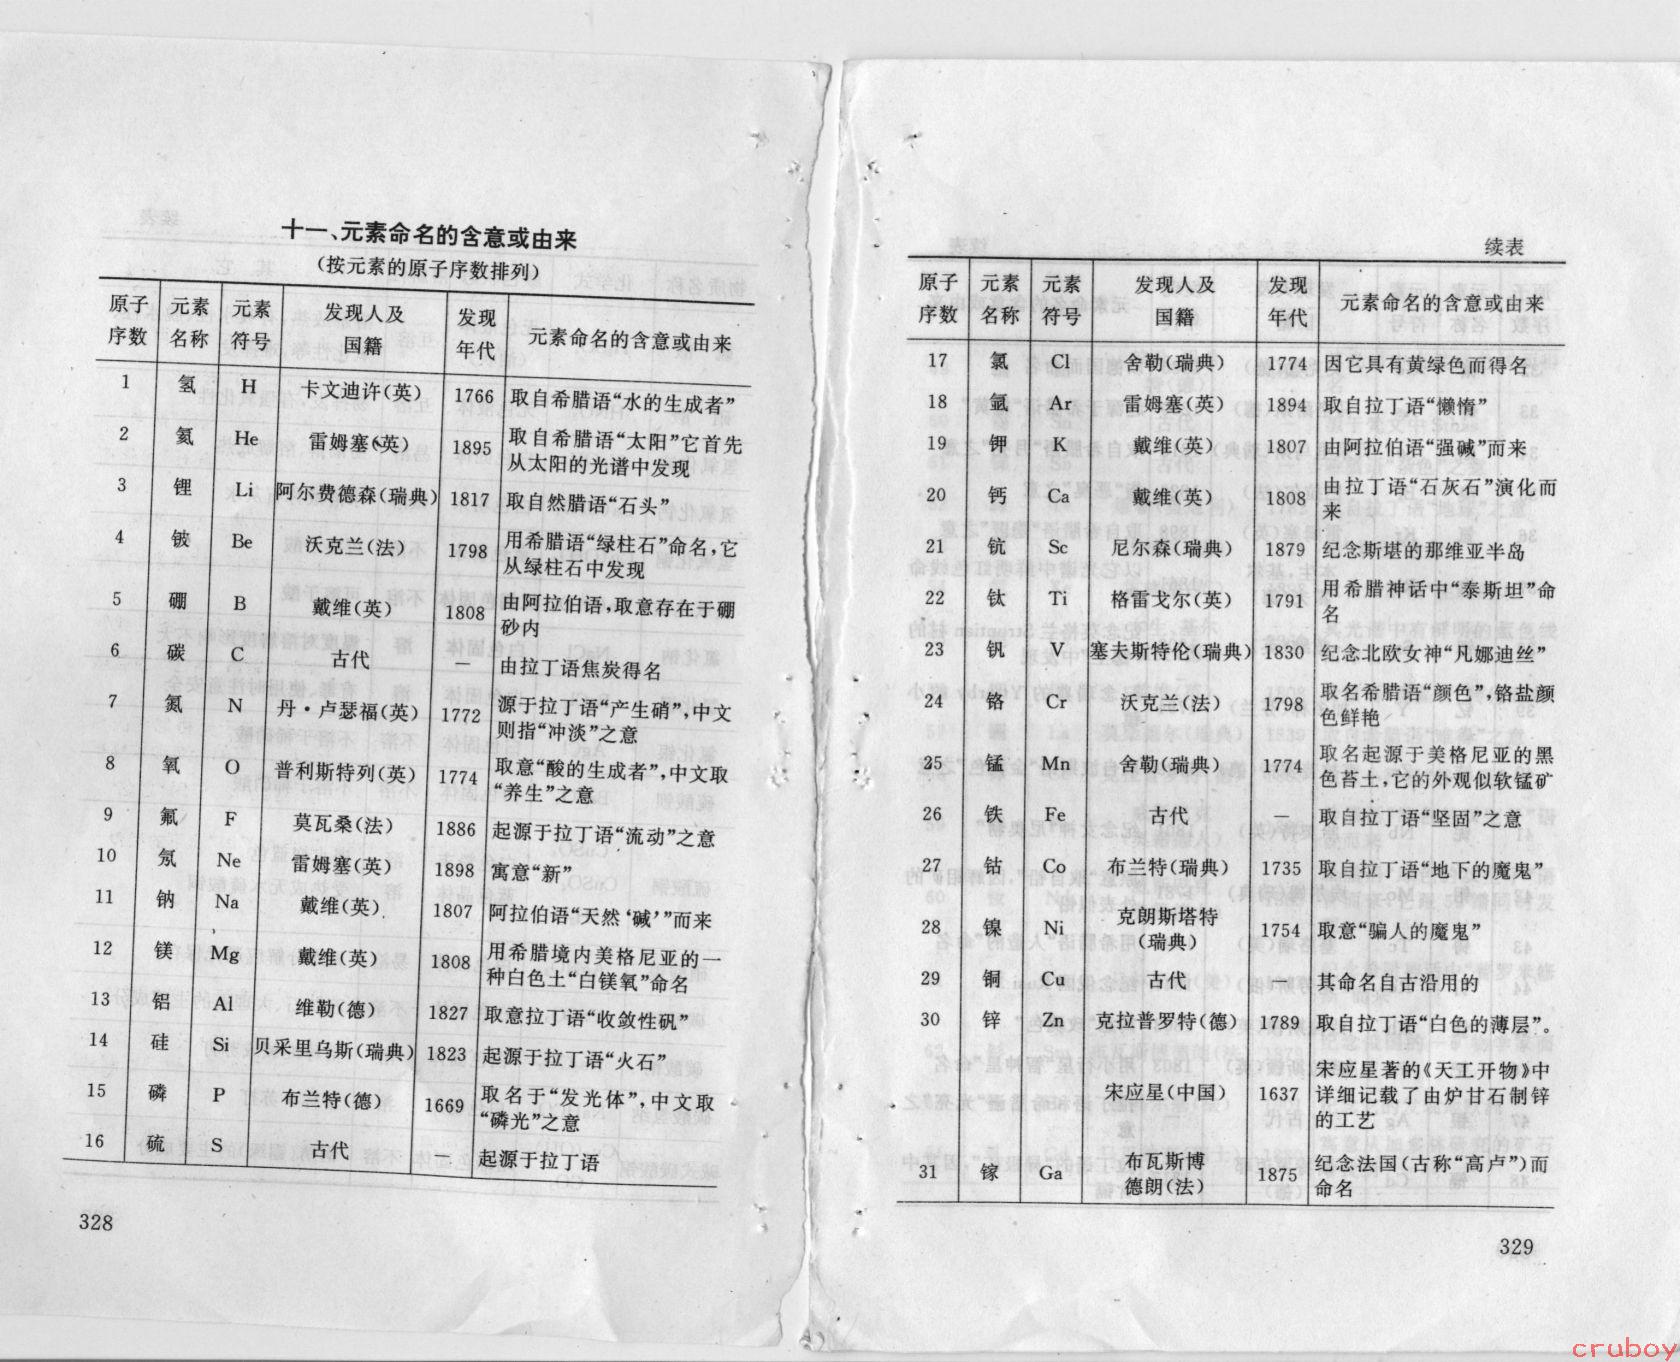 十一、元素命名的含意或由来
（按元素的原子序数排列）
原子序数 元素名称 元素符号 发现人及国籍 发现年代 元素命名的含意或由来
1 氢 H 卡文迪许(英) 1766 取自希腊语“水的生成者”
2 氦 He 雷姆塞(英) 1895 取自希腊语“太阳”它首先
从太阳的光谱中发现
3 锂 Li 阿尔费德森(瑞典) 1817 取自然腊语“石头”
4 铍 Be 沃克兰(法) 1798 用希腊语“绿柱石”命名,它
从绿柱石中发现
5 硼 B 戴维(英) 1808 由阿拉伯语,取意存在于硼
砂内
6 碳 C 古代 — 由拉丁语焦炭得名
7 氮 N 丹·卢瑟福(英) 1772 源于拉丁语“产生硝”,中文
则指“冲淡”之意
8 氧 O 普利斯特列(英) 1774 取意“酸的生成者”,中文取
“养生”之意
9 氟 F 莫瓦桑(法) 1886 起源于拉丁语“流动”之意
10 氖 Ne 雷姆塞(英) 1898 寓意“新”
11 钠 Na 戴维(英) 1807 阿拉伯语“天然‘碱’”而来
12 镁 Mg 戴维(英) 1808 用希腊境内美格尼亚的一
种白色土“白镁氧”命名
13 铝 Al 维勒(德) 1827 取意拉丁语“收敛性矾”
14 硅 Si 贝采里乌斯(瑞典) 1823 起源于拉丁语“火石”
15 磷 P 布兰特(德) 1669 取名于“发光体”,中文取
“磷光”之意
16 硫 S 古代 — 起源于拉丁语
328
续表
原子序数 元素名称 元素符号 发现人及国籍 发现年代 元素命名的含意或由来
17 氯 Cl 舍勒(瑞典) 1774 因它具有黄绿色而得名
18 氩 Ar 雷姆塞(英) 1894 取自拉丁语“懒惰”
19 钾 K 戴维(英) 1807 由阿拉伯语“强碱”而来
20 钙 Ca 戴维(英) 1808 由拉丁语“石灰石”演化而
来
21 钪 Sc 尼尔森(瑞典) 1879 纪念斯堪的那维亚半岛
22 钛 Ti 格雷戈尔(英) 1791 用希腊神话中“泰斯坦”命
名
23 钒 V 塞夫斯特伦(瑞典) 1830 纪念北欧女神“凡娜迪丝”
24 铬 Cr 沃克兰(法) 1798 取名希腊语“颜色”,铬盐颜
色鲜艳
25 锰 Mn 舍勒(瑞典) 1774 取名起源于美格尼亚的黑
色苔土,它的外观似软锰矿
26 铁 Fe 古代 — 取自拉丁语“坚固”之意
27 钴 Co 布兰特(瑞典) 1735 取自拉丁语“地下的魔鬼”
28 镍 Ni 克朗斯塔特(瑞典) 1754 取意“骗人的魔鬼”
29 铜 Cu 古代 — 其命名自古沿用的
30 锌 Zn 克拉普罗特(德) 1789 取自拉丁语“白色的薄层”。
宋应星(中国) 1637 宋应星著的《天工开物》中
详细记载了由炉甘石制锌
的工艺
31 镓 Ga 布瓦斯博德朗(法) 1875 纪念法国(古称“高卢”)而
命名
329
cruboy